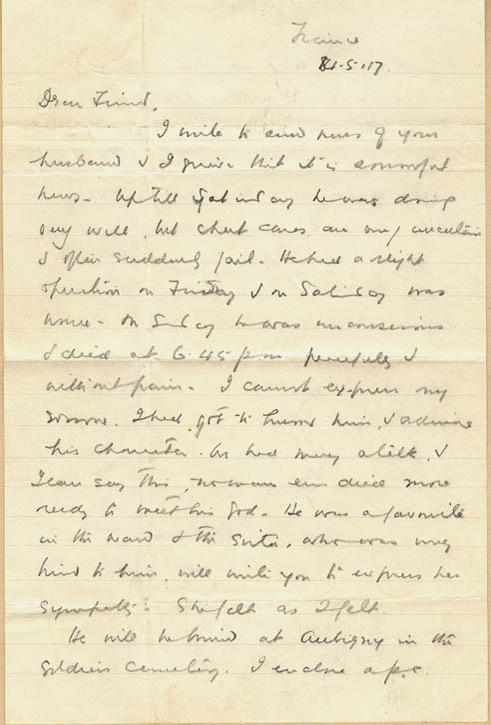 France
21-5-17.
Dear Friend,
I write to send news of your
husband & I grieve that it is sorrowful
news - Up till Saturday he was doing
very well, but chest cases are very uncertain
& often suddenly fail. He had a slight
operation on Friday & on Saturday was
worse - On Sunday he was unconscious
& died at 6.45 pm peacefully &
without pain - I cannot express my
sorrow. I had got to know him, & admire
his character. We had many a talk, &
I can say this, no man ever died more
ready to meet his God. He was a favourite
in the ward & the Sister, who was very
kind to him, will write you to express her
sympathy. She felt as I felt.
He will be buried at Aubigny in the
Soldiers Cemetery. I enclose a p.c.